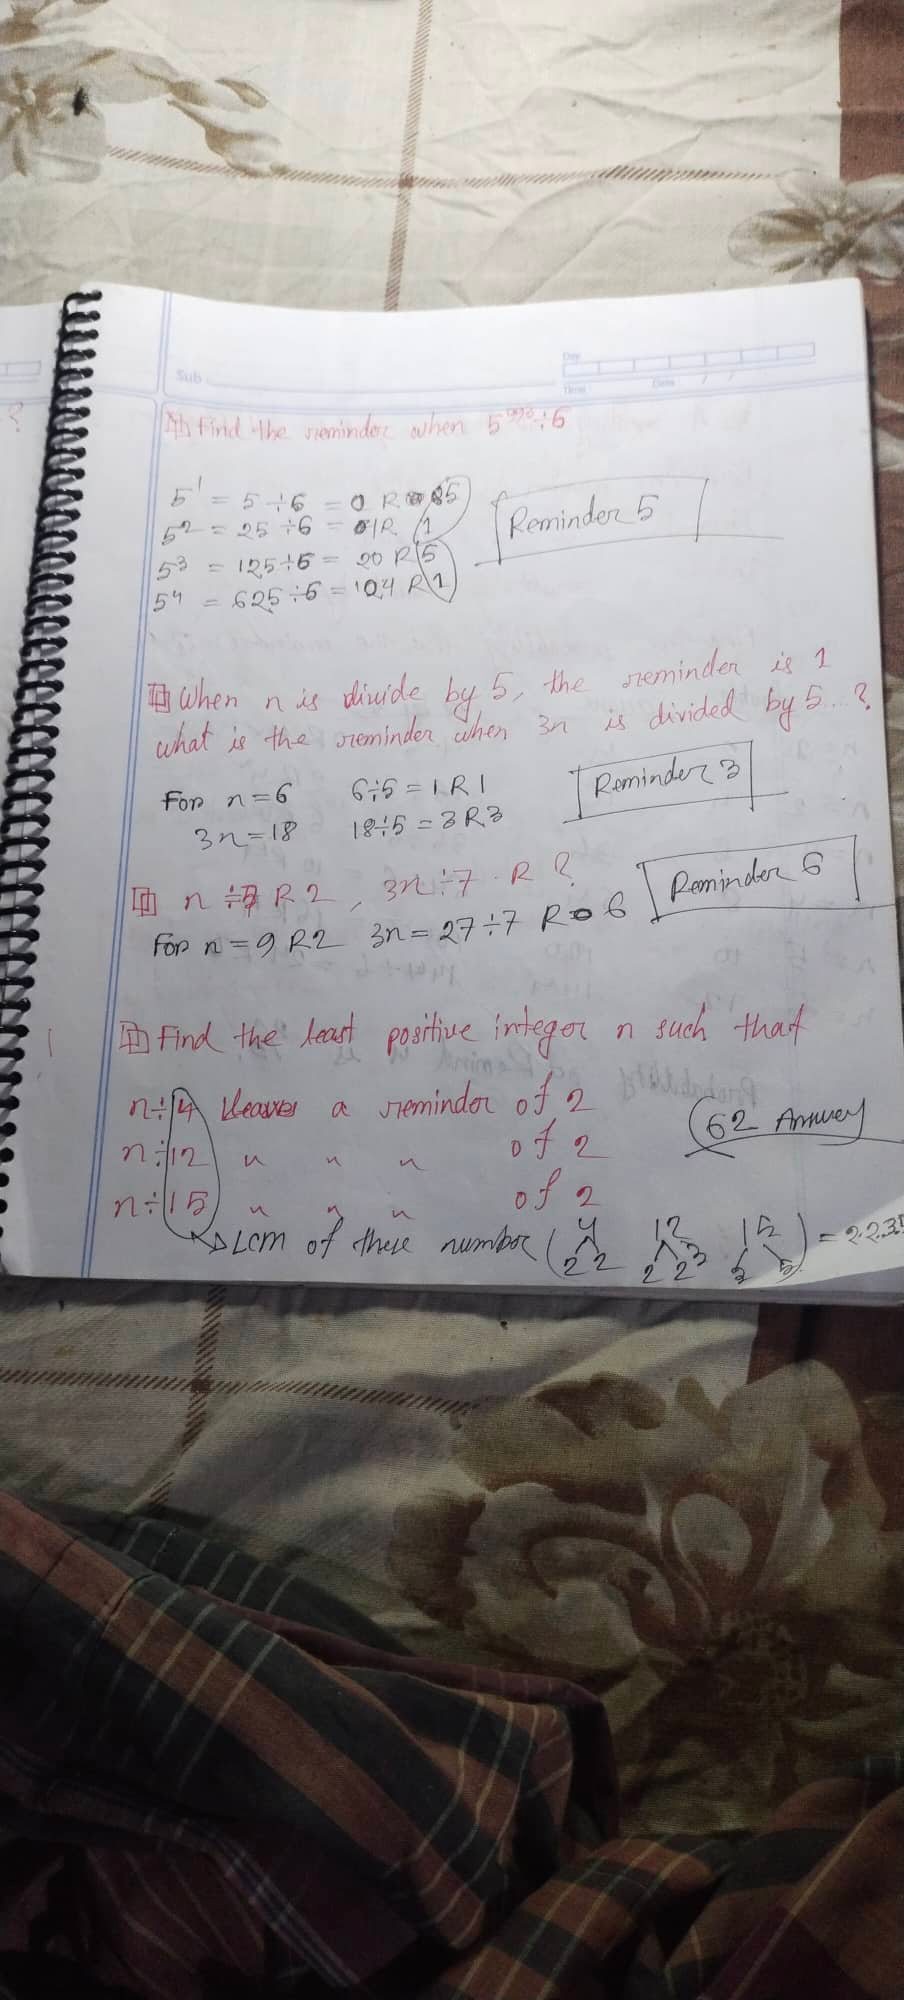 Sub
Day
Time Date / /
Find the reminder when 5 ÷ 6
5¹ = 5 ÷ 6 = 0 R 5
5² = 25 ÷ 6 = R 1
5³ = 125 ÷ 6 = 20 R 5
5⁴ = 625 ÷ 6 = 104 R 1
Reminder 5
When n is divide by 5, the reminder is 1
what is the reminder when 3n is divided by 5...?
For n = 6 6÷5 = 1 R 1
3n = 18 18÷5 = 3 R 3
Reminder 3
n ÷ 7 R 2, 3n ÷ 7 . R ?
For n = 9 R 2 3n = 27 ÷ 7 R 6
Reminder 6
Find the least positive integer n such that
n ÷ 4 leaves a reminder of 2
n ÷ 12 " " " of 2
n ÷ 15 " " " of 2
62 Answer
LCM of these number (4 12 15) = 2.2.3.5
2 2 2 2 3 3 5
?